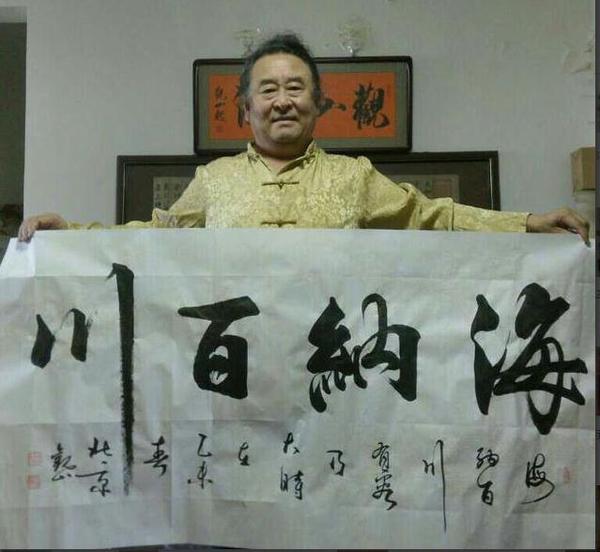 觀山
海納百川
海
納百
川
有容
乃
大時
在
乙未
春
北京
觀山